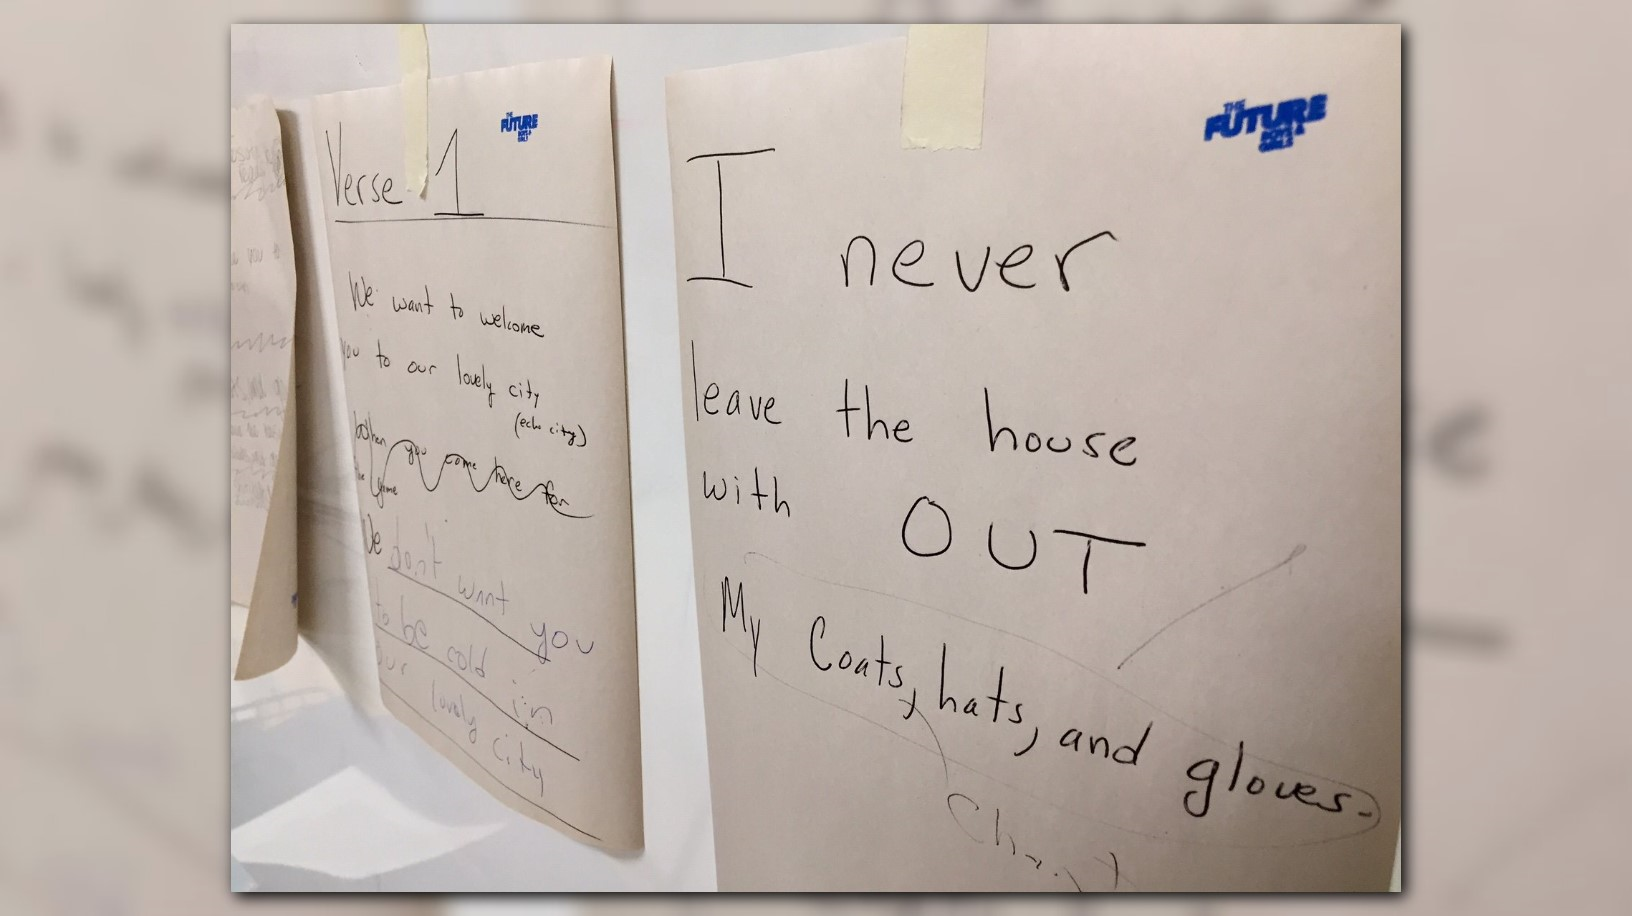 Verse 1
THE
FUTURE
BOYS &
GIRLS
We want to welcome
you to our lovely city
(echo city)
When you come here for
the game
We don't want you
to be cold in
our lovely city
THE
FUTURE
BOYS &
GIRLS
I never
leave the house
with OUT
My Coats, hats, and gloves.